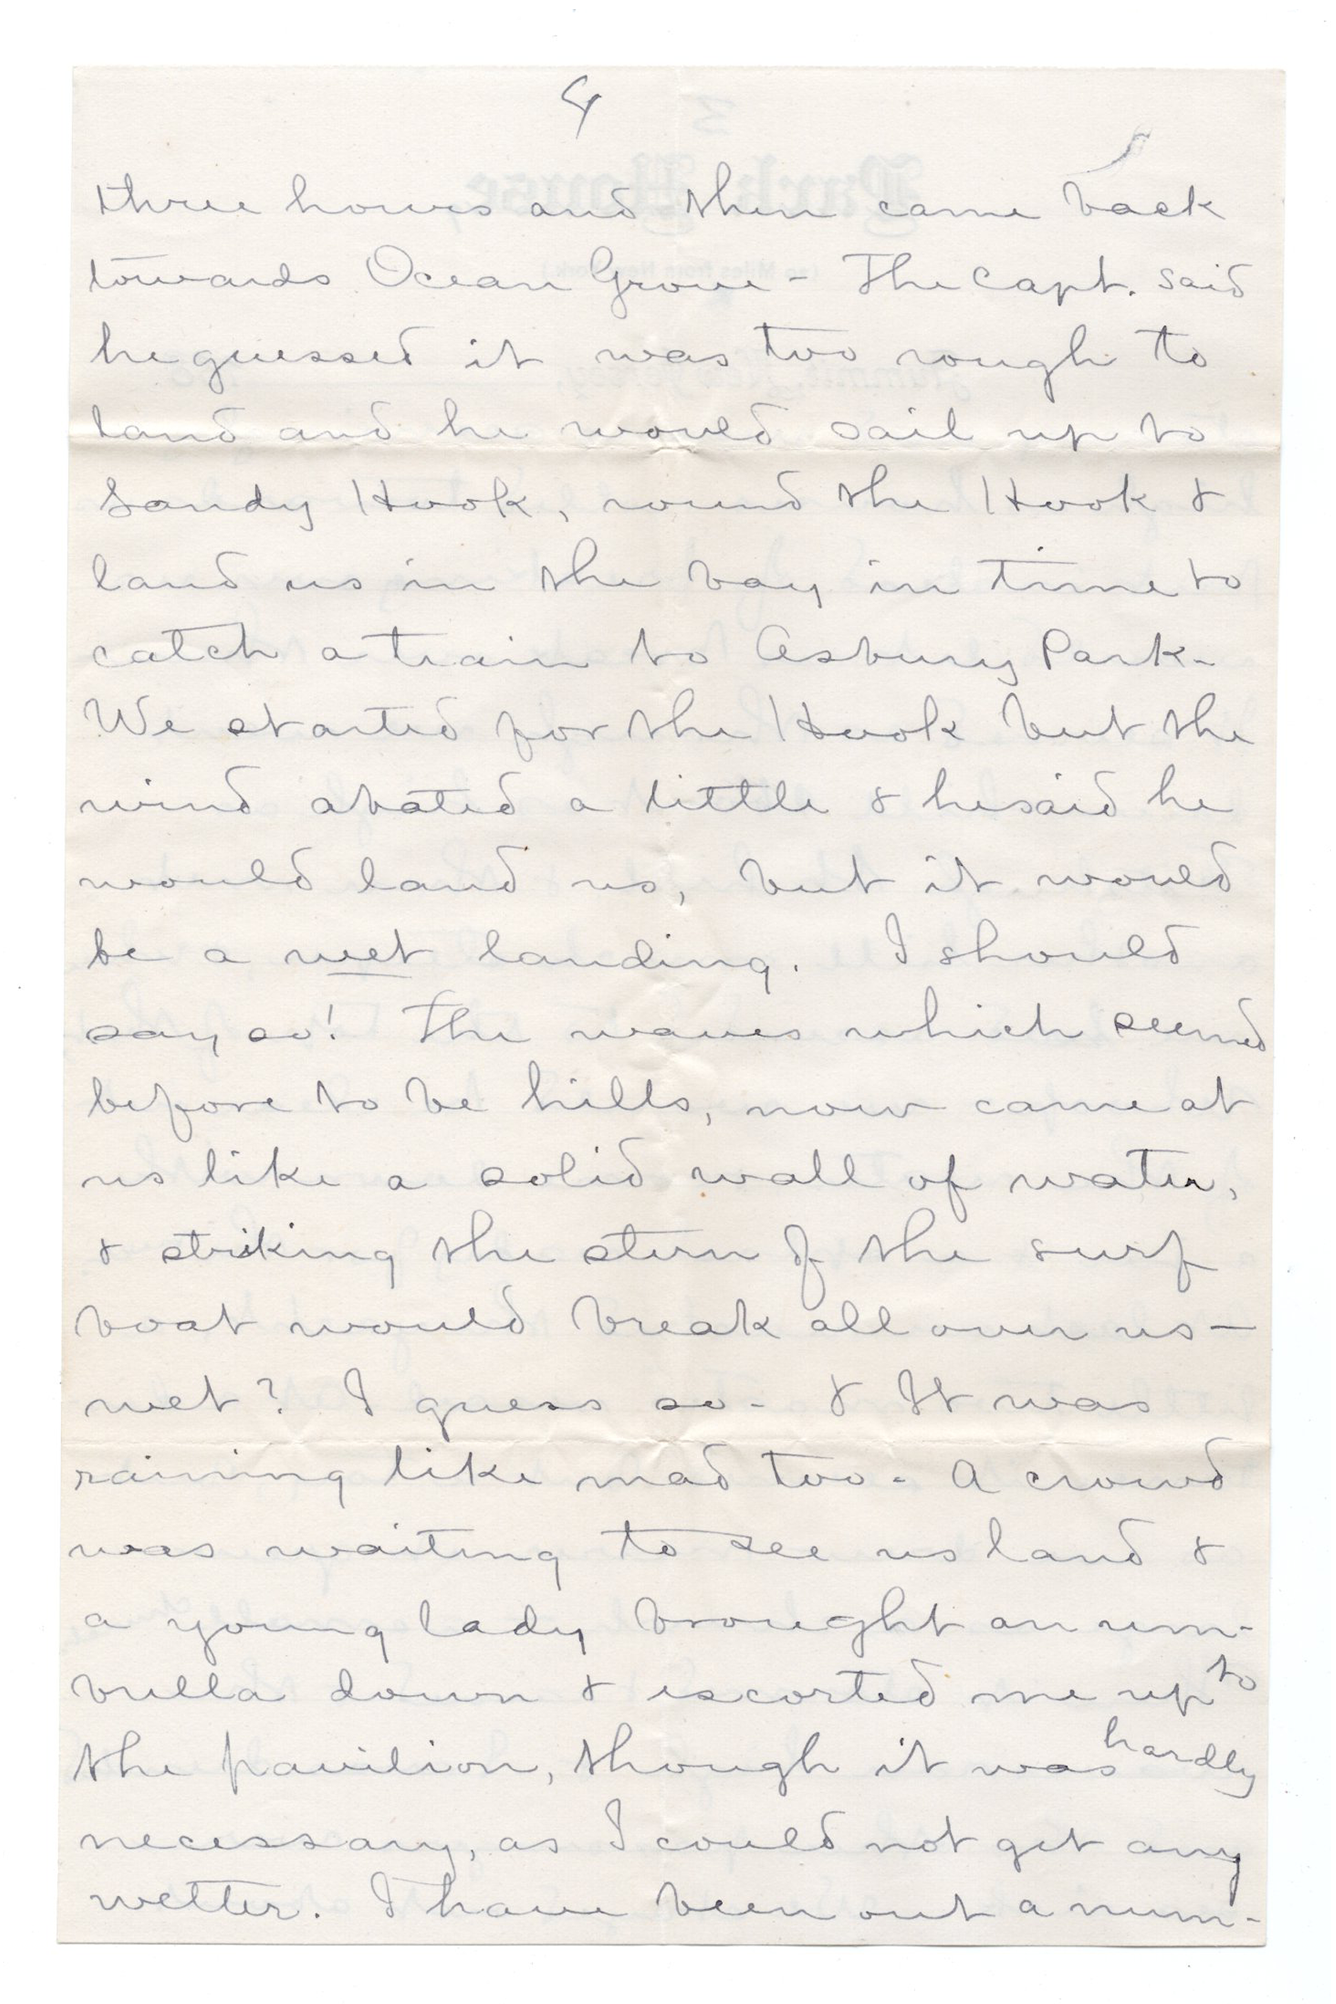 4
three hours and then came back
towards Ocean Grove - The Capt. said
he guessed it was too rough to
land and he would sail up to
Sandy Hook, round the Hook &
land us in the bay in time to
catch a train to Asbury Park -
We started for the Hook but the
wind abated a little & he said he
would land us, but it would
be a wet landing. I should
say so! The waves which seemed
before to be hills, now came at
us like a solid wall of water,
& striking the stern of the surf
boat would break all over us -
wet? I guess so - & It was
raining like mad too - A crowd
was waiting to see us land &
a young lady brought an um-
brella down & escorted me up to
the pavilion, though it was hardly
necessary, as I could not get any
wetter. I have been out a num-